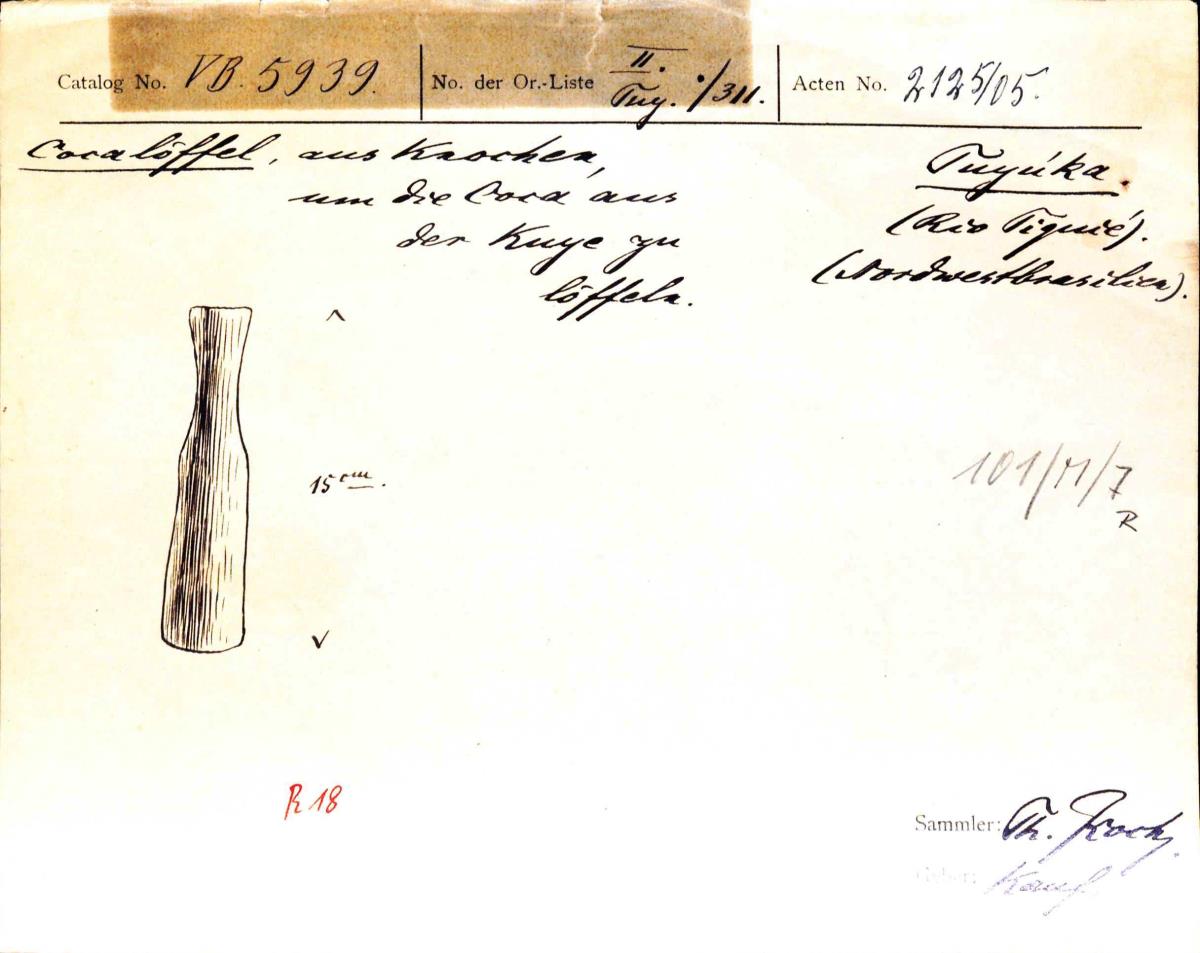 Catalog No. VB. 5939.
No. der Or.-Liste II. Tuy. ·/311.
Acten No. 2125/05.
Cocalöffel, aus Knochen,
um die Coca aus
der Kuye zu
löffeln.
Tuyúka.
(Rio Tiquié).
(Nordwestbrasilien).
15 cm.
101/M/7
R
R 18
Sammler: Th. Koch,
Geber: Kauf.